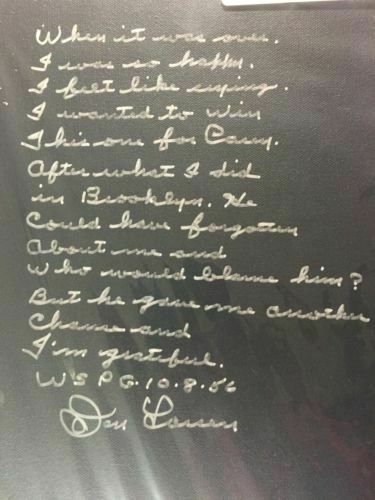 When it was over.
I was so happy.
I felt like crying.
I wanted to win
This one for Casey.
After what I did
in Brooklyn. He
Could have forgotten
About me and
Who would blame him?
But he gave me another
Chance and
I'm grateful.
WSPG. 10.8.56
Don Larsen